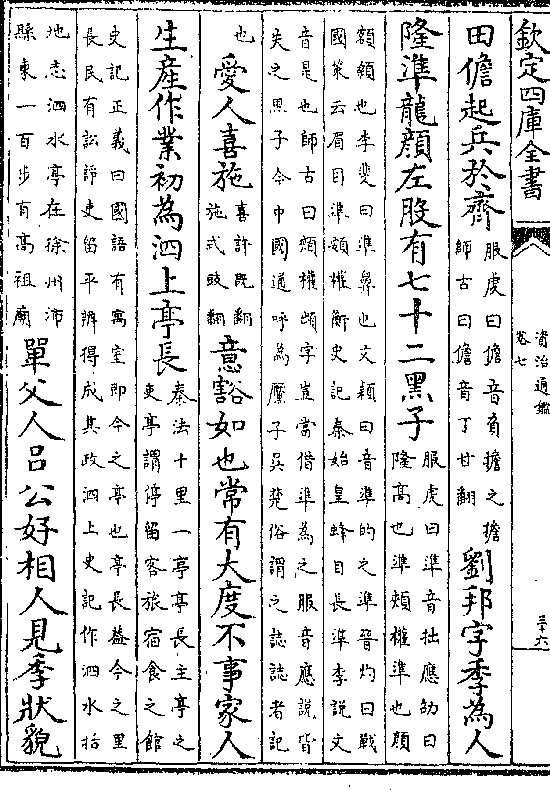 欽定四庫全書
資治通鑑
卷七
三十六
田儋起兵於齊
服虔曰擔音負擔之擔
師古曰儋音丁甘翻
劉邦字季為人
隆準龍顔左股有七十二黑子
服虔曰準音拙應劭曰
隆高也準頰權準也顔
額顙也李斐曰準鼻也文穎曰音準的之準晉灼曰戰
國策云眉目準頞權衡史記秦始皇蜂目長準李說文
音是也師古曰頰權䪼字豈當借準為之服音應說皆
失之黑子今中國通呼為黶子吳楚俗謂之誌誌者記
也
愛人喜施
喜許既翻
施式豉翻
意豁如也常有大度不事家人
生産作業初為泗上亭長
秦法十里一亭亭長主亭之
吏亭謂停留客旅宿食之館
史記正義曰國語有寓室即今之亭也亭長葢今之里
長民有訟諍吏留平辨得成其政泗上史記作泗水括
地志泗水亭在徐州沛
縣東一百步有高祖廟
單父人呂公好相人見季狀貌